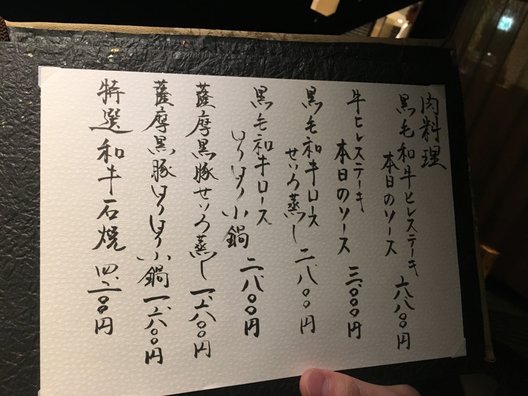 肉料理
黒毛和牛ヒレステーキ
本日のソース 六八〇〇円
牛ヒレステーキ
本日のソース 三〇〇〇円
黒毛和牛ロース
せいろ蒸し 二八〇〇円
黒毛和牛ロース
はりはり小鍋 二八〇〇円
薩摩黒豚せいろ蒸し 一、六〇〇円
薩摩黒豚はりはり小鍋 一、六〇〇円
特選和牛石焼 四、二〇〇円